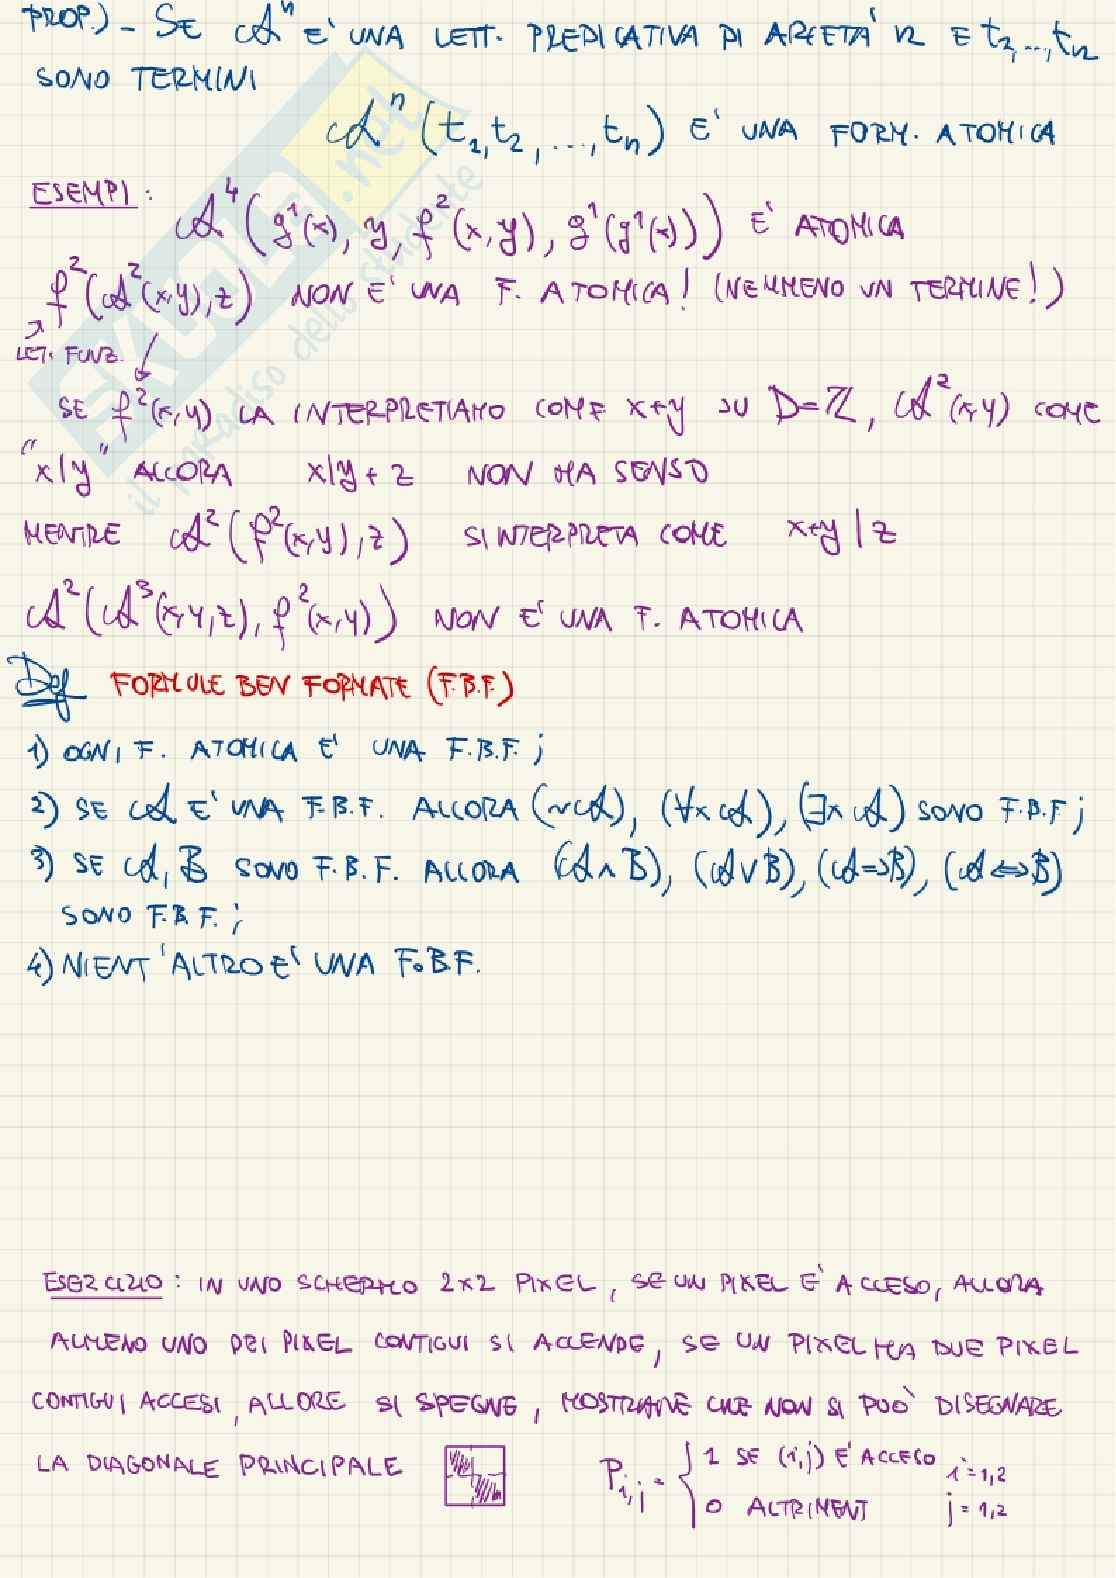 PROP.) - SE 𝒜ⁿ E' UNA LETT. PREDICATIVA DI ARIETA' n E t₁,...,tₙ
SONO TERMINI
𝒜ⁿ(t₁,t₂,...,tₙ) E' UNA FORM. ATOMICA
ESEMPI: 𝒜⁴(g¹(x), y, f²(x,y), g¹(g¹(x))) E' ATOMICA
f²(𝒜²(x,y),z) NON E' UNA F. ATOMICA! (NEMMENO UN TERMINE!)
LET. FUNZ.
SE f²(x,y) LA INTERPRETIAMO COME x+y SU D=ℤ, 𝒜²(x,y) COME
"x|y" ALLORA x|y + z NON HA SENSO
MENTRE 𝒜²(f²(x,y),z) SI INTERPRETA COME x+y | z
𝒜²(𝒜³(x,y,z), f²(x,y)) NON E' UNA F. ATOMICA
Def FORMULE BEN FORMATE (F.B.F.)
1) OGNI F. ATOMICA E' UNA F.B.F.;
2) SE 𝒜 E' UNA F.B.F. ALLORA (~𝒜), (∀x 𝒜), (∃x 𝒜) SONO F.B.F;
3) SE 𝒜, B SONO F.B.F. ALLORA (𝒜 ∧ B), (𝒜 ∨ B), (𝒜 => B), (𝒜 <=> B)
SONO F.B.F.;
4) NIENT'ALTRO E' UNA F.B.F.
ESERCIZIO: IN UNO SCHERMO 2x2 PIXEL, SE UN PIXEL E' ACCESO, ALLORA
ALMENO UNO DEI PIXEL CONTIGUI SI ACCENDE, SE UN PIXEL HA DUE PIXEL
CONTIGUI ACCESI, ALLORE SI SPEGNE, MOSTRARE CHE NON SI PUO' DISEGNARE
LA DIAGONALE PRINCIPALE
P i,j = { 1 SE (i,j) E' ACCESO i=1,2
0 ALTRIMENT j=1,2
SKUOLA.net
il paradiso dello studente